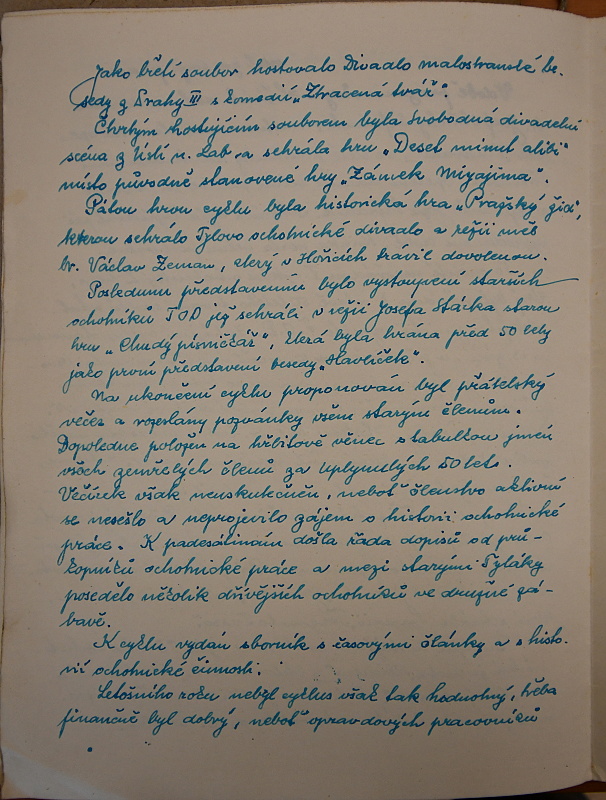 Jako třetí soubor hostovalo Divadlo malostranské be-
sedy z Prahy III s komedií „Ztracená tvář".
Čtvrtým hostujícím souborem byla Svobodná divadelní
scéna z Ústí n. Lab. a sehrála hru „Deset minut alibi"
místo původně stanovené hry „Zámek Miyajima".
Pátou hrou cyklu byla historická hra „Pražský žid",
kterou sehrálo Tylovo ochotnické divadlo a režii měl
br. Václav Zeman, který v Hořicích trávil dovolenou.
Posledním představením bylo vystoupení starších
ochotníků TOD již sehráli v režii Josefa Stácka starou
hru „Chudý písničkář", která byla hrána před 50 lety
jako první představení besedy „Havlíček".
Na ukončení cyklu proponován byl přátelský
večer a rozeslány pozvánky všem starým členům.
Dopoledne položen na hřbitově věnec s tabulkou jmen
všech zemřelých členů za uplynulých 50 let.
Večírek však neuskutečněn, neboť členstvo aktivní
se nesešlo a neprojevilo zájem o historii ochotnické
práce. K padesátinám došla řada dopisů od prů-
kopníků ochotnické práce a mezi starými Tyláky
posedělo několik dřívějších ochotníků ve družné zá-
bavě.
K cyklu vydán sborník s časovými články a s histo-
rií ochotnické činnosti.
Letošního roku nebyl cyklus však tak hodnotný, třeba
finančně byl dobrý, neboť opravdových pracovníků